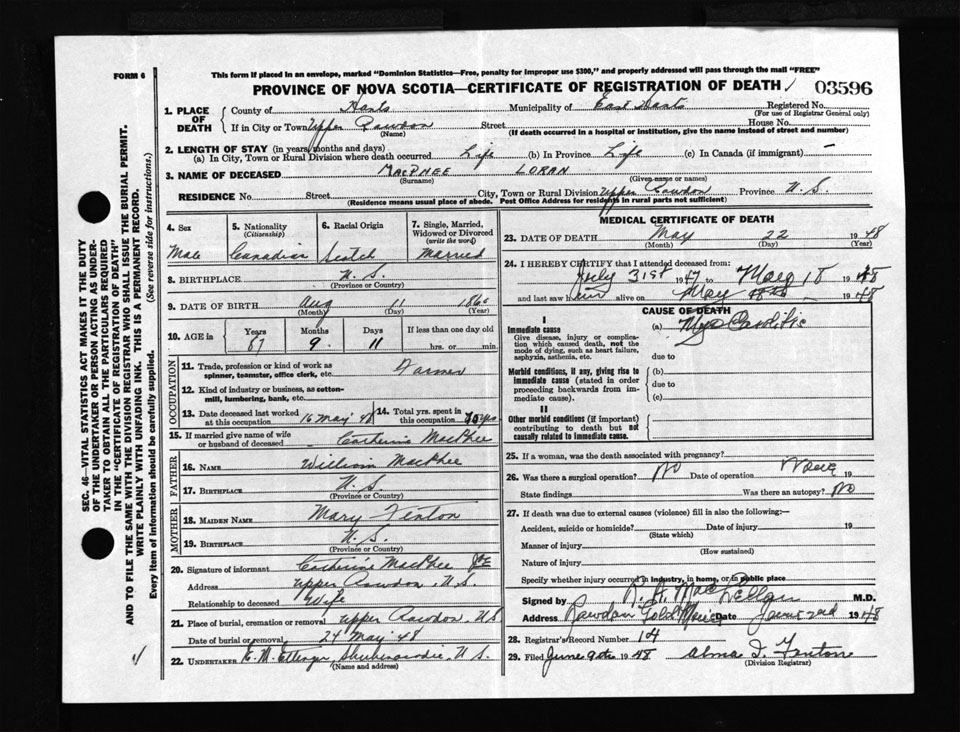 FORM 6
This form if placed in an envelope, marked "Dominion Statistics—Free, penalty for improper use $300," and properly addressed will pass through the mail "FREE"
PROVINCE OF NOVA SCOTIA—CERTIFICATE OF REGISTRATION OF DEATH 03596
1. PLACE OF DEATH County of Hants Municipality of East Hants Registered No.
(For use of Registrar General only)
If in City or Town Upper Rawdon Street House No.
(Name) (If death occurred in a hospital or institution, give the name instead of street and number)
2. LENGTH OF STAY (in years, months and days)
(a) In City, Town or Rural Division where death occurred Life (b) In Province Life (c) In Canada (if immigrant) —
3. NAME OF DECEASED MACPHEE LORAN
(Surname) (Given name or names)
RESIDENCE No. Street City, Town or Rural Division Upper Rawdon Province N.S.
(Residence means usual place of abode. Post Office Address for residents in rural parts not sufficient)
4. Sex
Male
5. Nationality
(Citizenship)
Canadian
6. Racial Origin
Scotch
7. Single, Married, Widowed or Divorced
(write the word)
Married
8. BIRTHPLACE N.S.
(Province or Country)
9. DATE OF BIRTH Aug 11 1860
(Month) (Day) (Year)
10. AGE in Years Months Days If less than one day old
87 9 11 hrs. or min.
OCCUPATION
11. Trade, profession or kind of work as spinner, teamster, office clerk, etc. Farmer
12. Kind of industry or business, as cotton-mill, lumbering, bank, etc.
13. Date deceased last worked at this occupation 16 May 48
14. Total yrs. spent in this occupation 70 yrs
15. If married give name of wife or husband of deceased Catherine MacPhee
FATHER
16. NAME William MacPhee
17. BIRTHPLACE N.S.
(Province or Country)
MOTHER
18. MAIDEN NAME Mary Fenton
19. BIRTHPLACE N.S.
(Province or Country)
20. Signature of informant Catherine MacPhee
Address Upper Rawdon, N.S.
Relationship to deceased Wife
21. Place of burial, cremation or removal Upper Rawdon, NS
Date of burial or removal 24 May '48
22. UNDERTAKER E. M. Ettinger Shubenacadie, N.S.
(Name and address)
MEDICAL CERTIFICATE OF DEATH
23. DATE OF DEATH May 22 1948
(Month) (Day) (Year)
24. I HEREBY CERTIFY that I attended deceased from:
July 31st 1947 to May 18 1948
and last saw him alive on May 18th 1948
CAUSE OF DEATH
I
Immediate cause
Give disease, injury or complication which caused death, not the mode of dying, such as heart failure, asphyxia, asthenia, etc.
(a)
due to
Morbid conditions, if any, giving rise to immediate cause (stated in order proceeding backwards from immediate cause).
(b)
due to
(c)
II
Other morbid conditions (if important) contributing to death but not causally related to immediate cause.
25. If a woman, was the death associated with pregnancy?
26. Was there a surgical operation? No Date of operation None 19
State findings Was there an autopsy? No
27. If death was due to external causes (violence) fill in also the following:—
Accident, suicide or homicide? Date of injury 19
(State which)
Manner of injury
(How sustained)
Nature of injury
Specify whether injury occurred in industry, in home, or in public place
Signed by R. A. MacLellan M.D.
Address Rawdon Gold Mines Date June 2nd 1948
28. Registrar's Record Number 14
29. Filed June 9th 1948 Alma I. Fenton
(Division Registrar)
SEC. 46—VITAL STATISTICS ACT MAKES IT THE DUTY
OF THE UNDERTAKER OR PERSON ACTING AS UNDER-
TAKER TO OBTAIN ALL THE PARTICULARS REQUIRED
IN THE "CERTIFICATE OF REGISTRATION OF DEATH"
AND TO FILE THE SAME WITH THE DIVISION REGISTRAR WHO SHALL ISSUE THE BURIAL PERMIT.
WRITE PLAINLY WITH UNFADING INK. THIS IS A PERMANENT RECORD.
Every item of information should be carefully supplied. (See reverse side for instructions.)